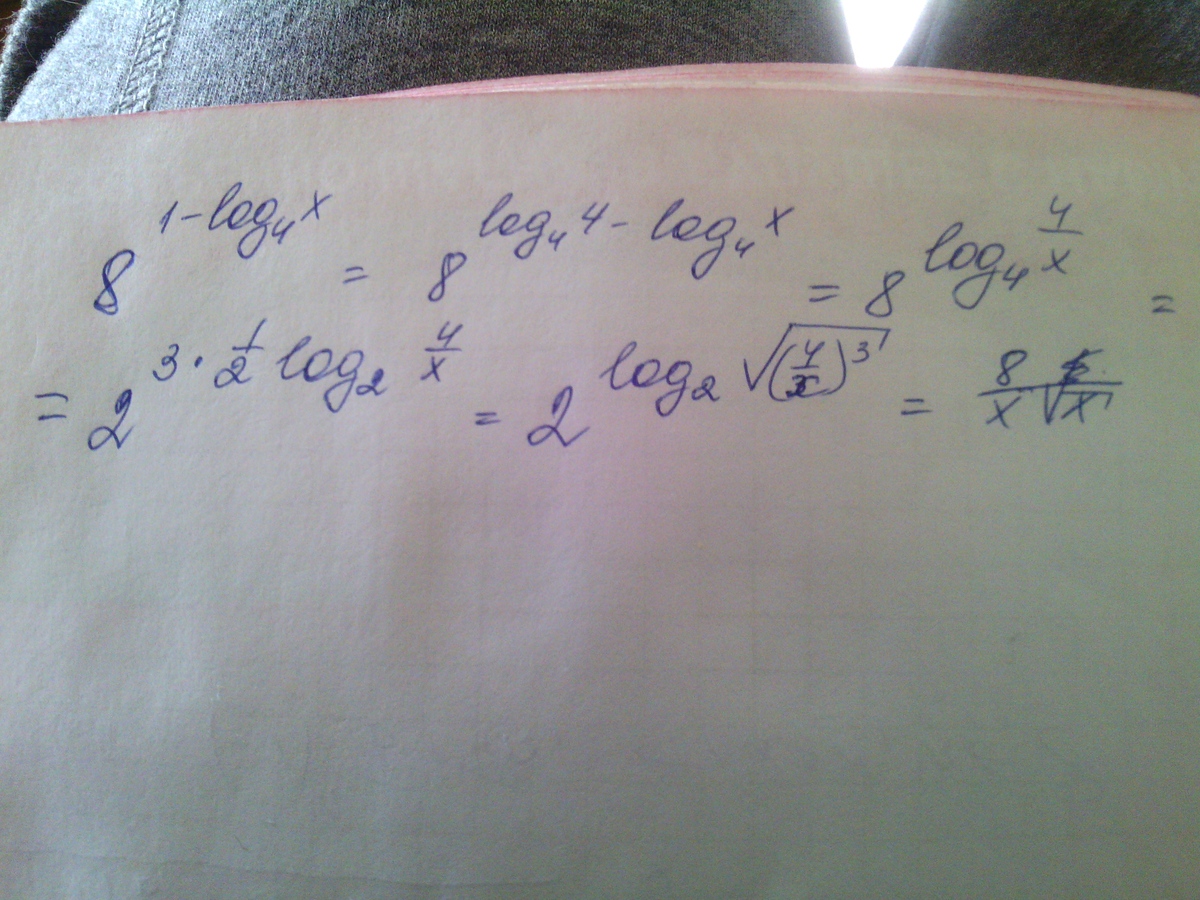 8^{1-log_4 x} = 8^{log_4 4 - log_4 x} = 8^{log_4 \frac{4}{x}} =
= 2^{3 · \frac{1}{2} log_2 \frac{4}{x}} = 2^{log_2 \sqrt{(\frac{4}{x})^3}} = \frac{8}{x\sqrt{x}}